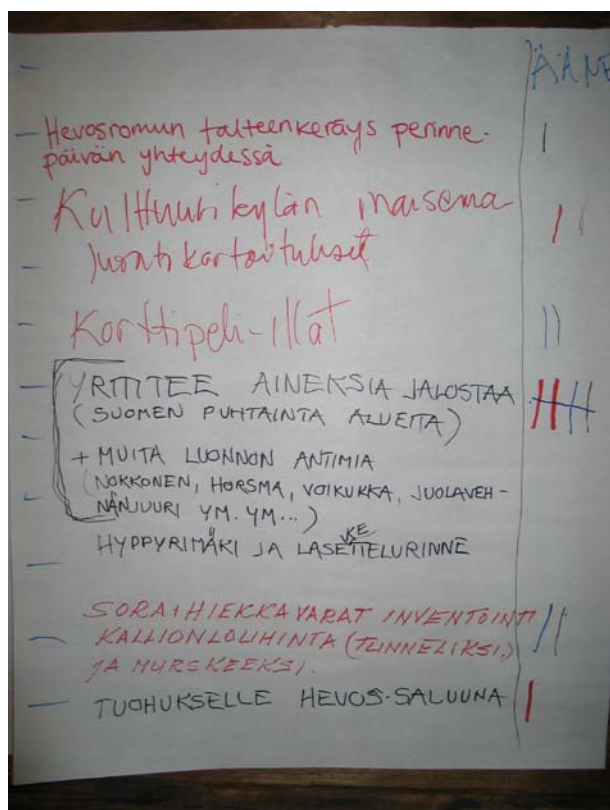 ÄÄNE
Hevosromun talteenkeräys perinne-
päivän yhteydessä
Kulttuurikylän maisema
luontokartoitukset
Korttipeli-illat
YRTTITEE AINEKSIA JALOSTAA
(SUOMEN PUHTAINTA ALUEITA)
+ MUITA LUONNON ANTIMIA
(NOKKONEN, HORSMA, VOIKUKKA, JUOLAVEH-
NÄNJUURI YM. YM...)
HYPPYRIMÄKI JA LASKETTELURINNE
SORA+HIEKKAVARAT INVENTOINTI
KALLIONLOUHINTA (TUNNELIKSI,)
JA MURSKEEKSI.
TUOHUKSELLE HEVOS-SALUUNA